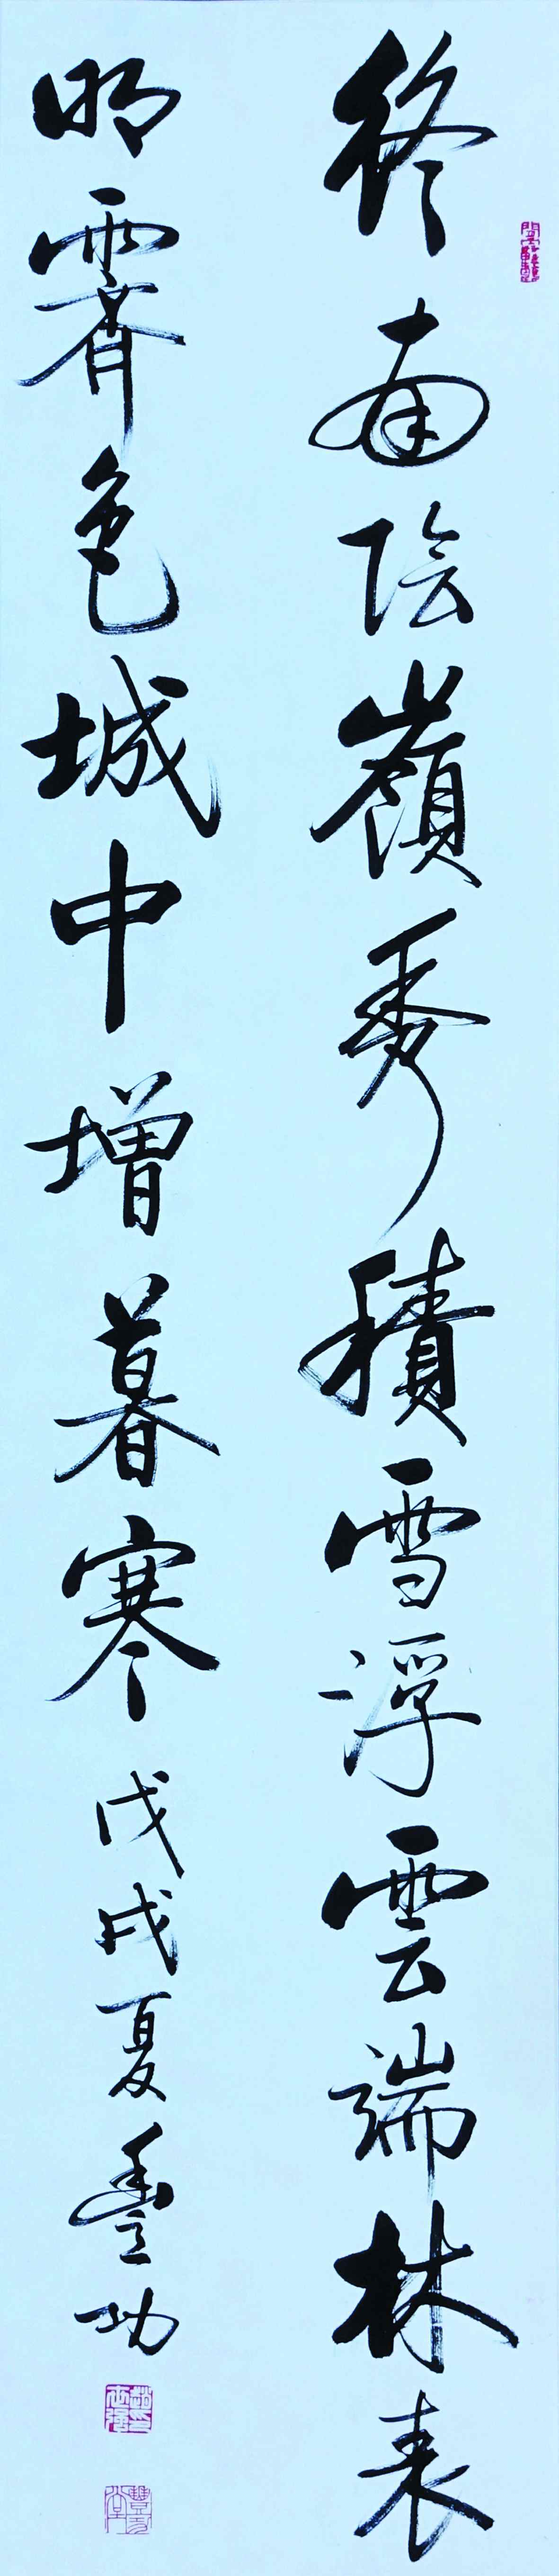 終南陰嶺秀積雪浮雲端林表
明霽色城中增暮寒 戊戌夏豐功